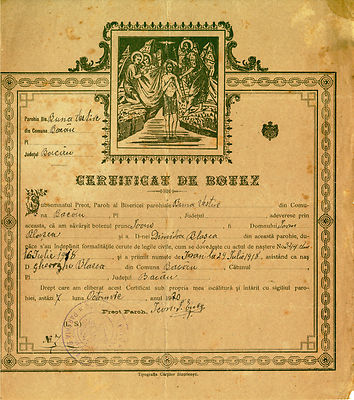 Parohia din Buna Vestire
din Comuna Bacau
Pl
Județul Bacău
CERTIFICAT DE BOTEZ
Subsemnatul Preot, Paroh al Bisericei parohiale Buna Vestire din Comu-
na Bacau, Pl , Județul , adeveresc prin
aceasta, că am săvârșit botezul prunc Ioan fi Domnului Ioan
și a D-nei Dimitra Blasca din această parohie, du-
păce s'au îndeplinit formalitățile cerute de legile civile, cum se dovedește cu actul de naștere No
16 Iulie 1918 și a primit numele de Ioan la 29 Iulie 1918, asistând ca naș
D gheorghe Blasca din Comuna Bacău, Cătunul
Pl Județul Bacău
Drept care am eliberat acest Certificat sub propria mea iscălitură și întărit cu sigiliul paro-
hiei, astăzi 7 luna Octomvrie, anul 1920
Preot Paroh,
(L. S.)
No.
Tipografia Cărților Bisericești.